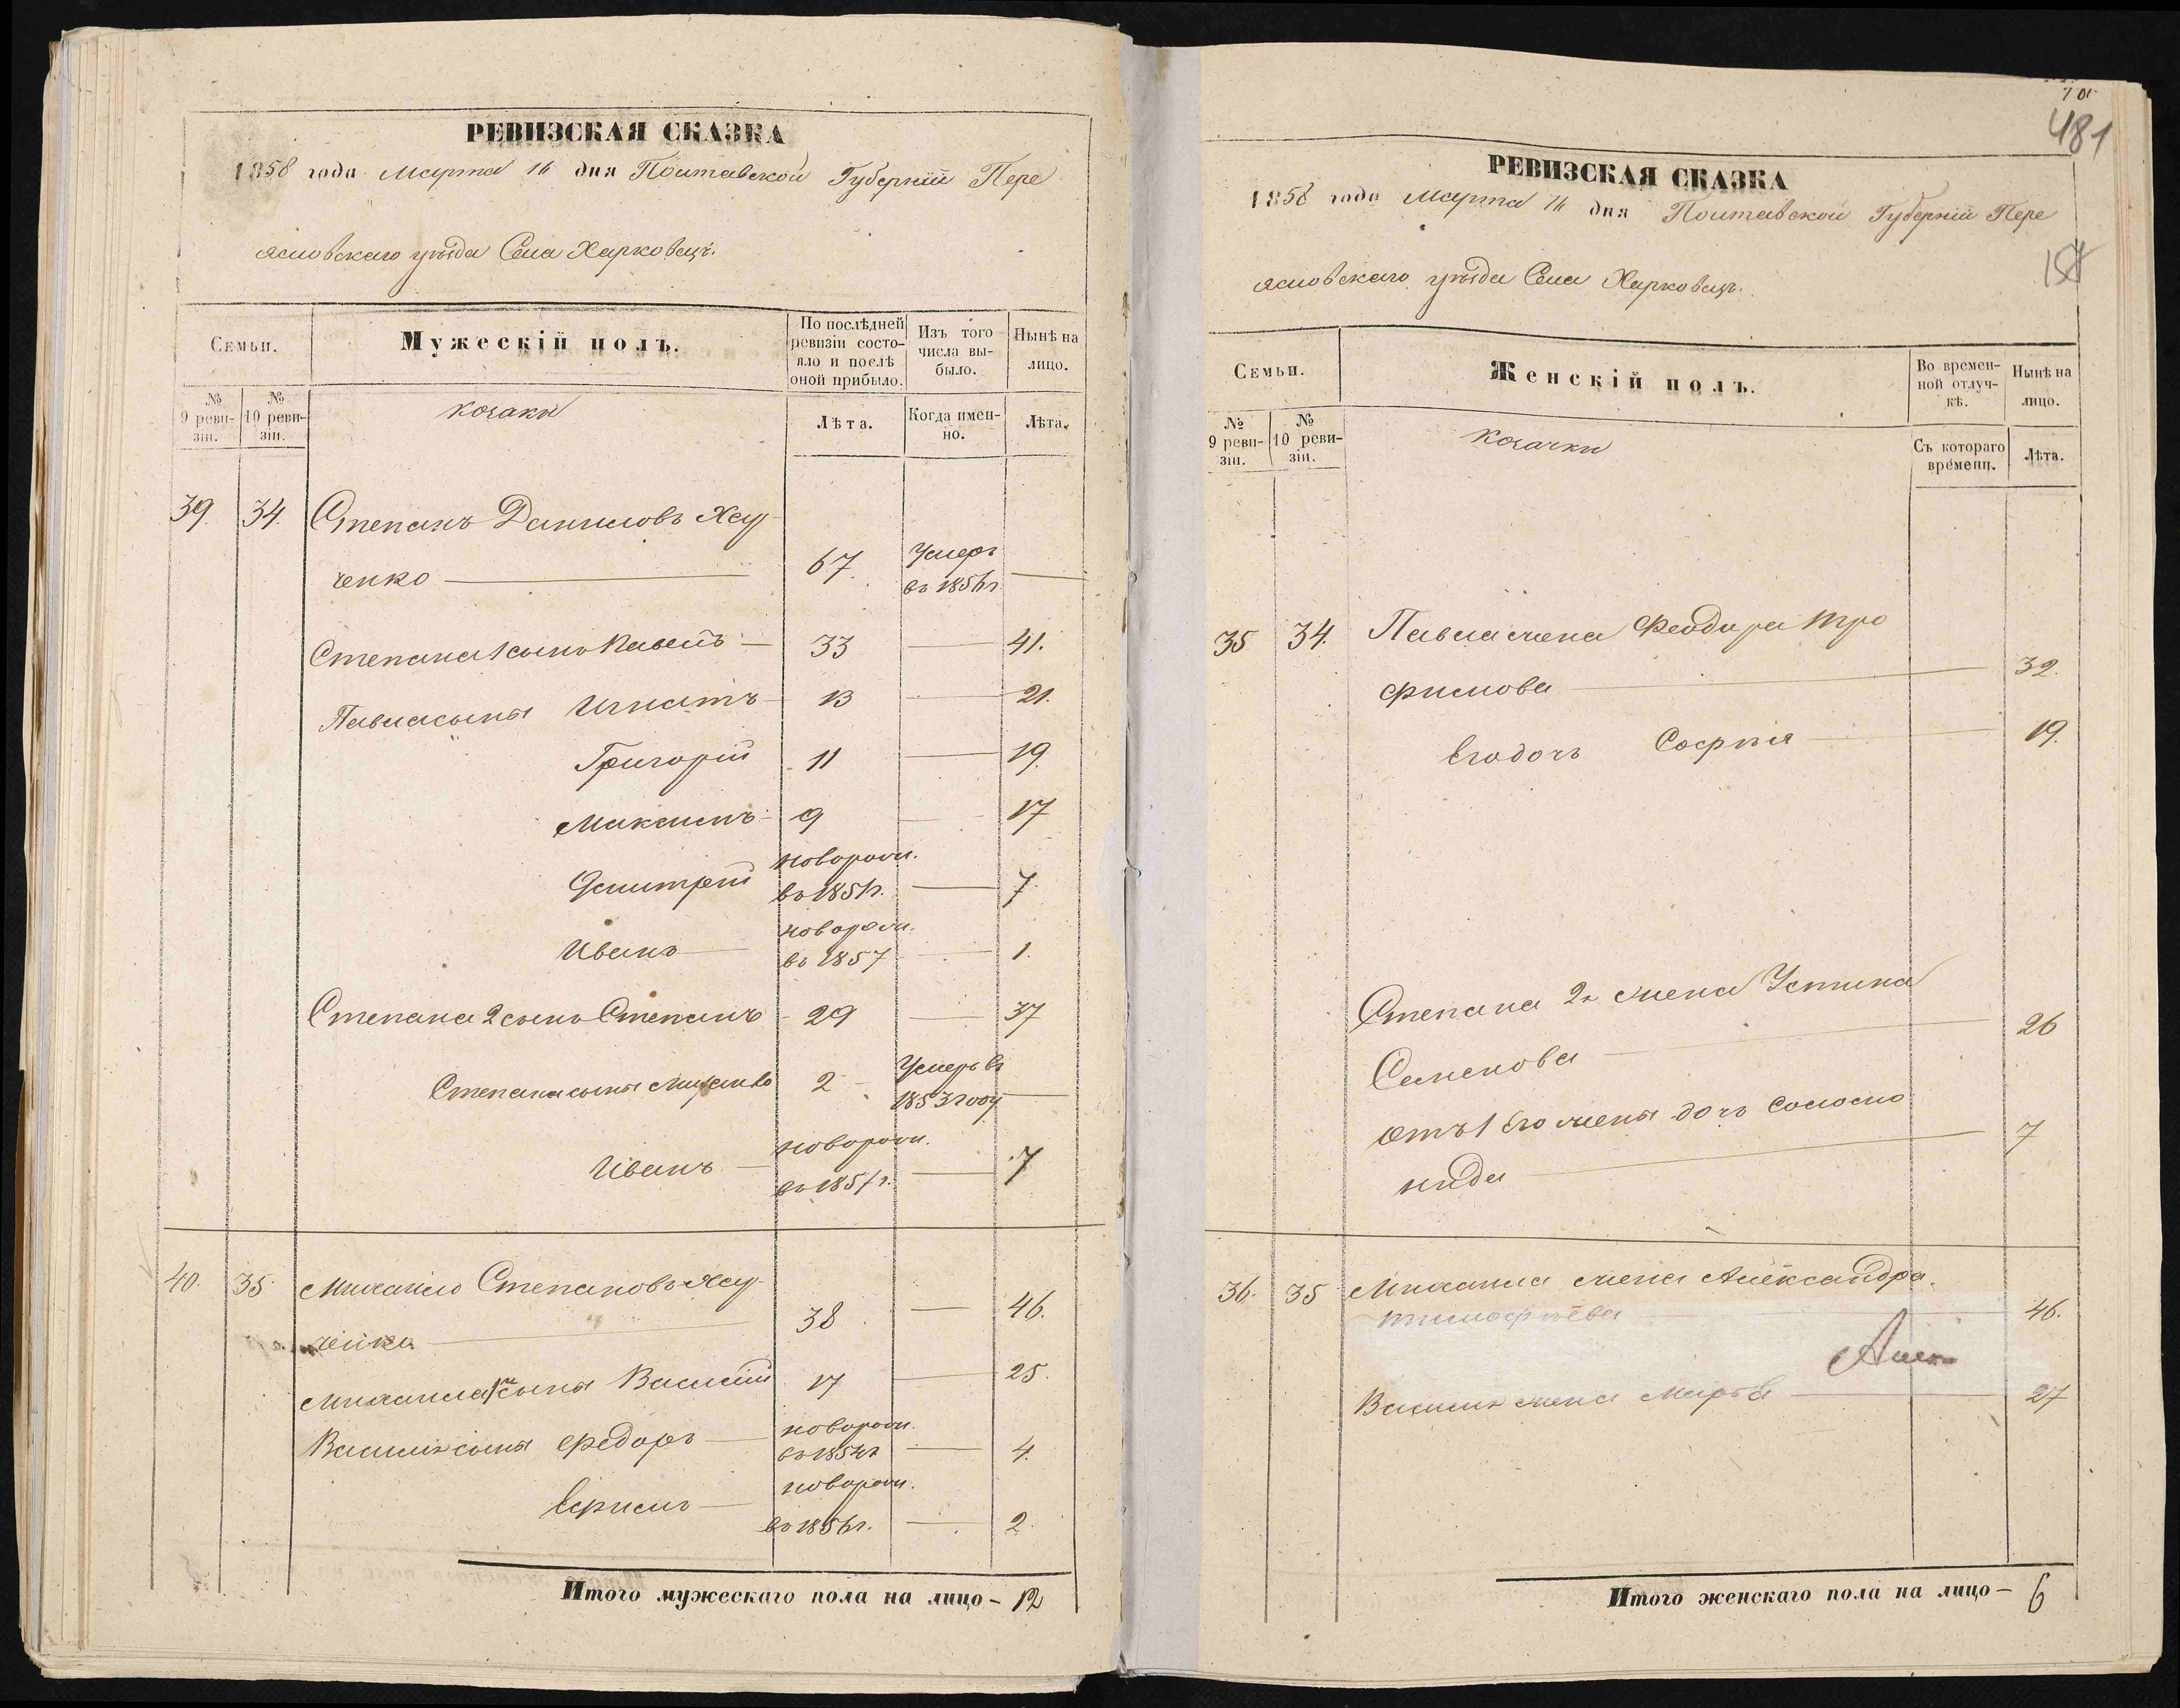 РЕВИЗСКАЯ СКАЗКА
1858 года Марта 16 дня Полтавской Губерніи Пере
яславскаго уѣзда Села Харковецъ.
Семьи.
Мужескій полъ.
По послѣдней ревизіи состояло и послѣ оной прибыло.
Изъ того числа выбыло.
Нынѣ на лицо.
№ 9 ревизіи.
№ 10 ревизіи.
козаки
Лѣта.
Когда именно.
Лѣта.
39. 34. Степанъ Даниловъ
ченко 67. Умеръ въ 1856 г.
Степана 1 сынъ Павелъ 33 41.
Павла сыны Игнатъ 13 21.
Григорій 11 19.
Максимъ 9 17
Дмитрій новорожд. въ 1851 г. 7.
Иванъ новорожд. въ 1857 1.
Степана 2 сынъ Степанъ 29 37
Степана сыны 2 Умеръ въ 1853 году
Иванъ новорожд. въ 1851 г. 7
40. 35 Михайло Степановъ
38 46.
Михайла сынъ Василій 17 25.
Василія сыны Федоръ новорожд. въ 1854 г. 4.
Ефимъ новорожд. въ 1856 г. 2.
Итого мужескаго пола на лицо - 12
481
РЕВИЗСКАЯ СКАЗКА
1858 года Марта 16 дня Полтавской Губерніи Пере
яславскаго уѣзда Села Харковецъ.
Семьи.
Женскій полъ.
Во временной отлучкѣ.
Нынѣ на лицо.
№ 9 ревизіи.
№ 10 ревизіи.
козачки
Съ котораго времени.
Лѣта.
35 34. Павла жена Феодора Тро
фимова 32.
Его дочь Софія 19.
Степана 2й жена Устина
Семенова 26
отъ 1 его жены дочь Соломо
нида 7
36. 35 Михаила жена Александра
Тимофѣева 46.
Василія жена Марѳа 27
Итого женскаго пола на лицо - 6